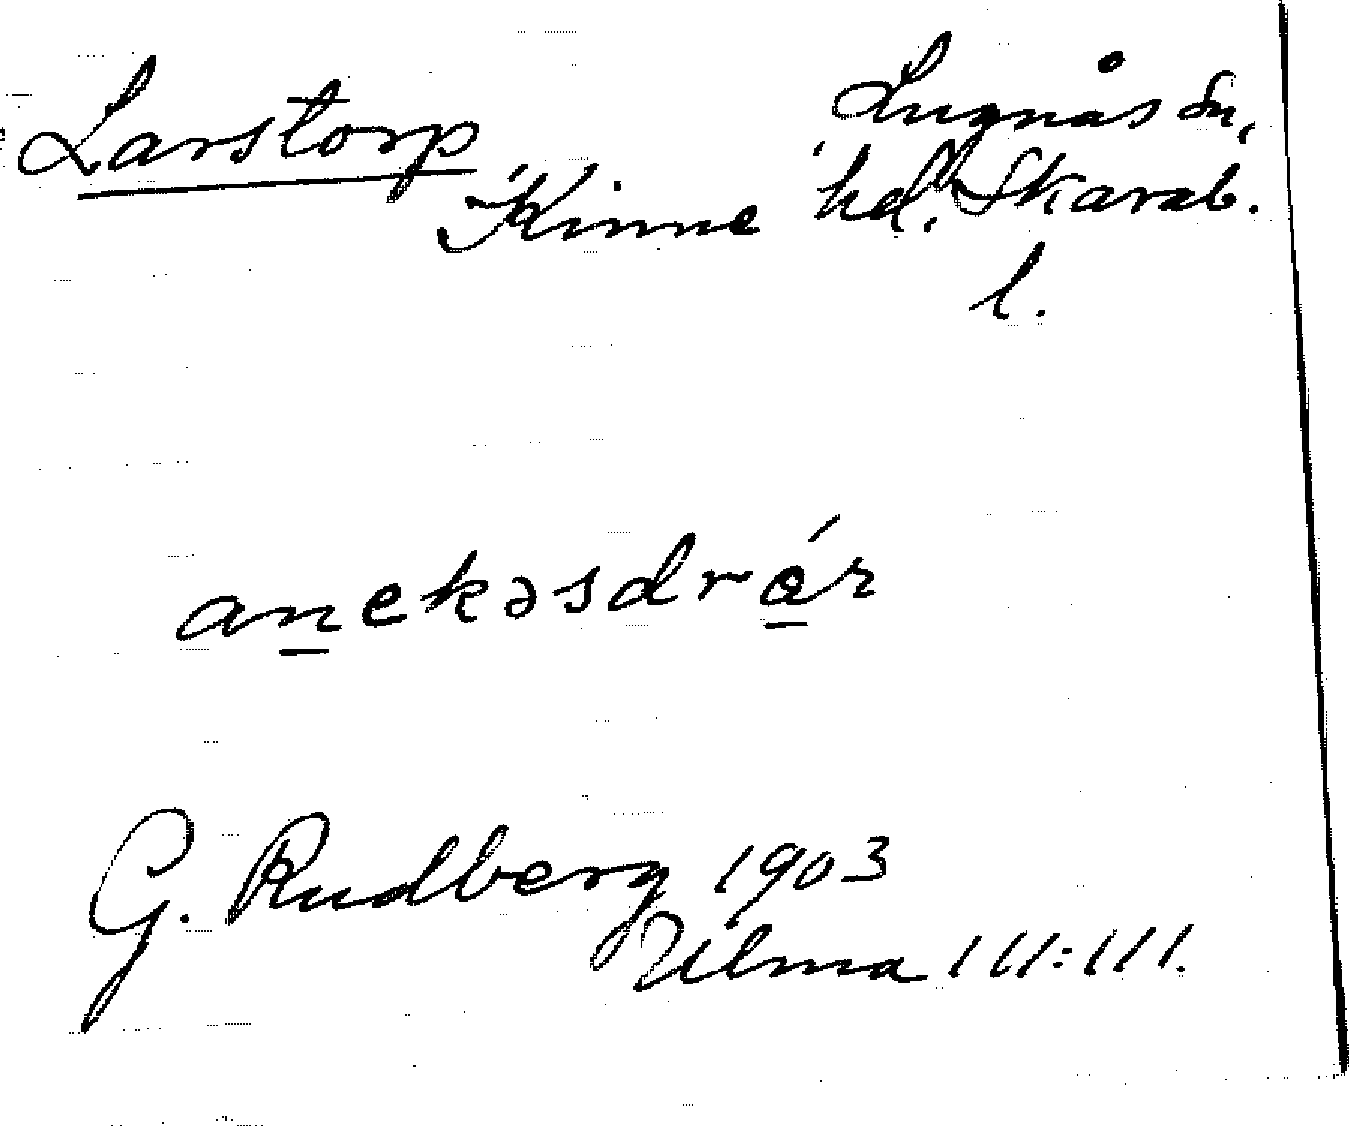 Larstorp Lugnås sn,
Kinne hd. Skarab.
l.
anekəsdrǿr
G. Rudberg 1903
Ulma 111:111.